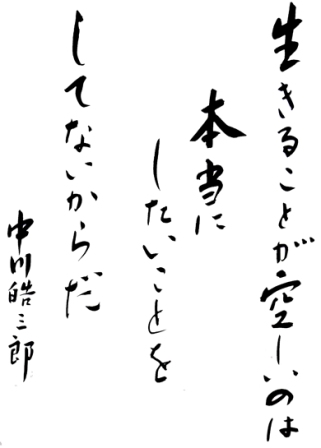 生きることが空しいのは
本当に
したいことを
してないからだ
中川皓三郎